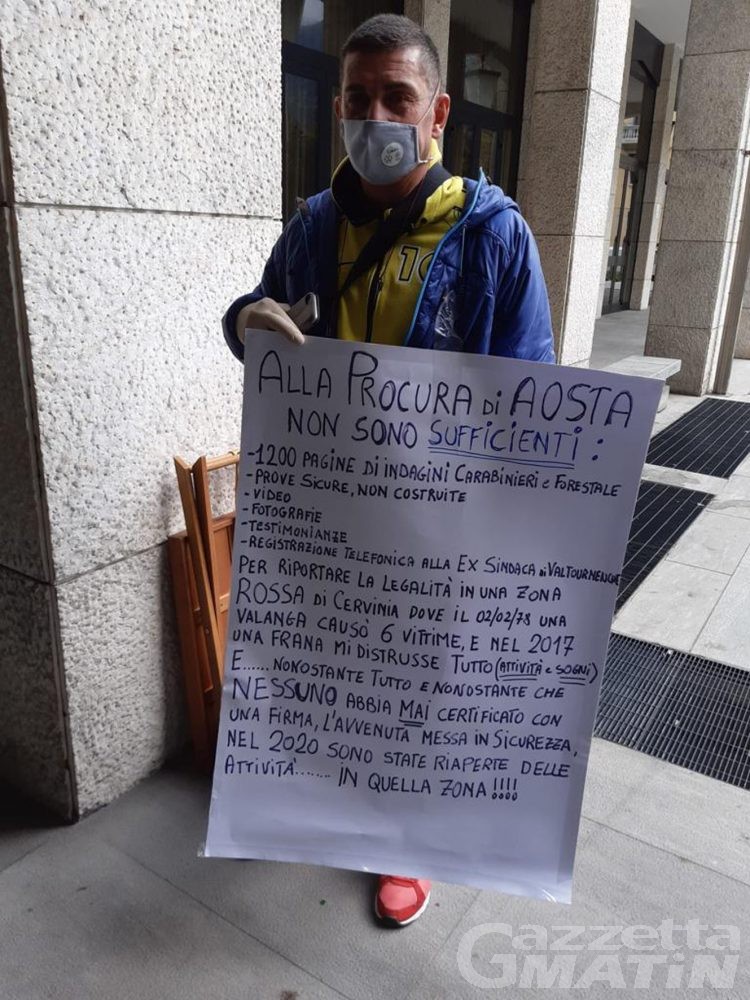 ALLA PROCURA di AOSTA
NON SONO SUFFICIENTI :
-1200 PAGINE DI INDAGINI CARABINIERI e FORESTALE
- PROVE SICURE, NON COSTRUITE
- VIDEO
- FOTOGRAFIE
-TESTIMONIANZE
-REGISTRAZIONE TELEFONICA ALLA EX SINDACA di VALTOURNENCHE
PER RIPORTARE LA LEGALITÀ IN UNA ZONA
ROSSA di CERVINIA DOVE IL 02/02/78 UNA
VALANGA CAUSÒ 6 VITTIME, E NEL 2017
UNA FRANA MI DISTRUSSE TUTTO (ATTIVITÀ e SOGNI)
E...... NONOSTANTE TUTTO E NONOSTANTE CHE
NESSUNO ABBIA MAI CERTIFICATO CON
UNA FIRMA, L'AVVENUTA MESSA IN SICUREZZA,
NEL 2020 SONO STATE RIAPERTE DELLE
ATTIVITA'....... IN QUELLA ZONA !!!!
10
Gazzetta
MATIN